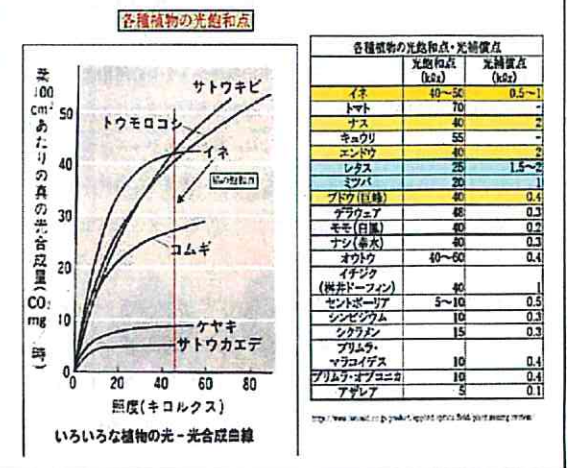 各種植物の光飽和点
葉100cm²あたりの真の光合成量(CO₂mg/時)
50
40
30
20
10
0
20
40
60
80
照度(キロルクス)
サトウキビ
トウモロコシ
イネ
コムギ
ケヤキ
サトウカエデ
いろいろな植物の光−光合成曲線
各種植物の光飽和点・光補償点
光飽和点 (klx) 光補償点 (klx)
イネ 40〜50 0.5〜1
トマト 70 -
ナス 40 2
キュウリ 55 -
エンドウ 40 2
レタス 25 1.5〜2
ミツバ 20 1
ブドウ(巨峰) 40 0.4
デラウェア 48 0.3
モモ(白鳳) 40 0.2
ナシ(幸水) 40 0.3
オウトウ 40〜60 0.4
イチジク
(桝井ドーフィン) 40 1
セントポーリア 5〜10 0.5
シンビジウム 10 0.3
シクラメン 15 0.3
プリムラ・
マラコイデス 10 0.4
プリムラ・オブコニカ 10 0.4
アザレア 5 0.1